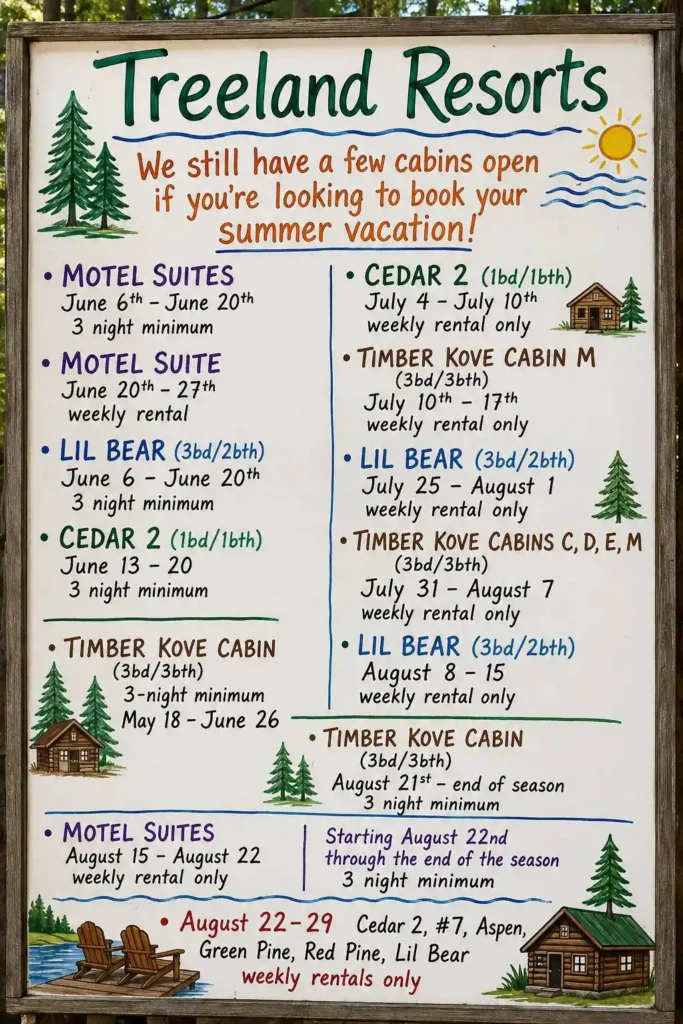 Treeland Resorts
We still have a few cabins open
if you're looking to book your
summer vacation!
• MOTEL SUITES
June 6th – June 20th
3 night minimum
• MOTEL SUITE
June 20th – 27th
weekly rental
• LIL BEAR (3bd/2bth)
June 6 – June 20th
3 night minimum
• CEDAR 2 (1bd/1bth)
June 13 – 20
3 night minimum
• TIMBER KOVE CABIN
(3bd/3bth)
3-night minimum
May 18 – June 26
• CEDAR 2 (1bd/1bth)
July 4 – July 10th
weekly rental only
• TIMBER KOVE CABIN M
(3bd/3bth)
July 10th – 17th
weekly rental only
• LIL BEAR (3bd/2bth)
July 25 – August 1
weekly rental only
• TIMBER KOVE CABINS C, D, E, M
(3bd/3bth)
July 31 – August 7
weekly rental only
• LIL BEAR (3bd/2bth)
August 8 – 15
weekly rental only
• TIMBER KOVE CABIN
(3bd/3bth)
August 21st – end of season
3 night minimum
• MOTEL SUITES
August 15 – August 22
weekly rental only
Starting August 22nd
through the end of the season
3 night minimum
• August 22–29 Cedar 2, #7, Aspen,
Green Pine, Red Pine, Lil Bear
weekly rentals only